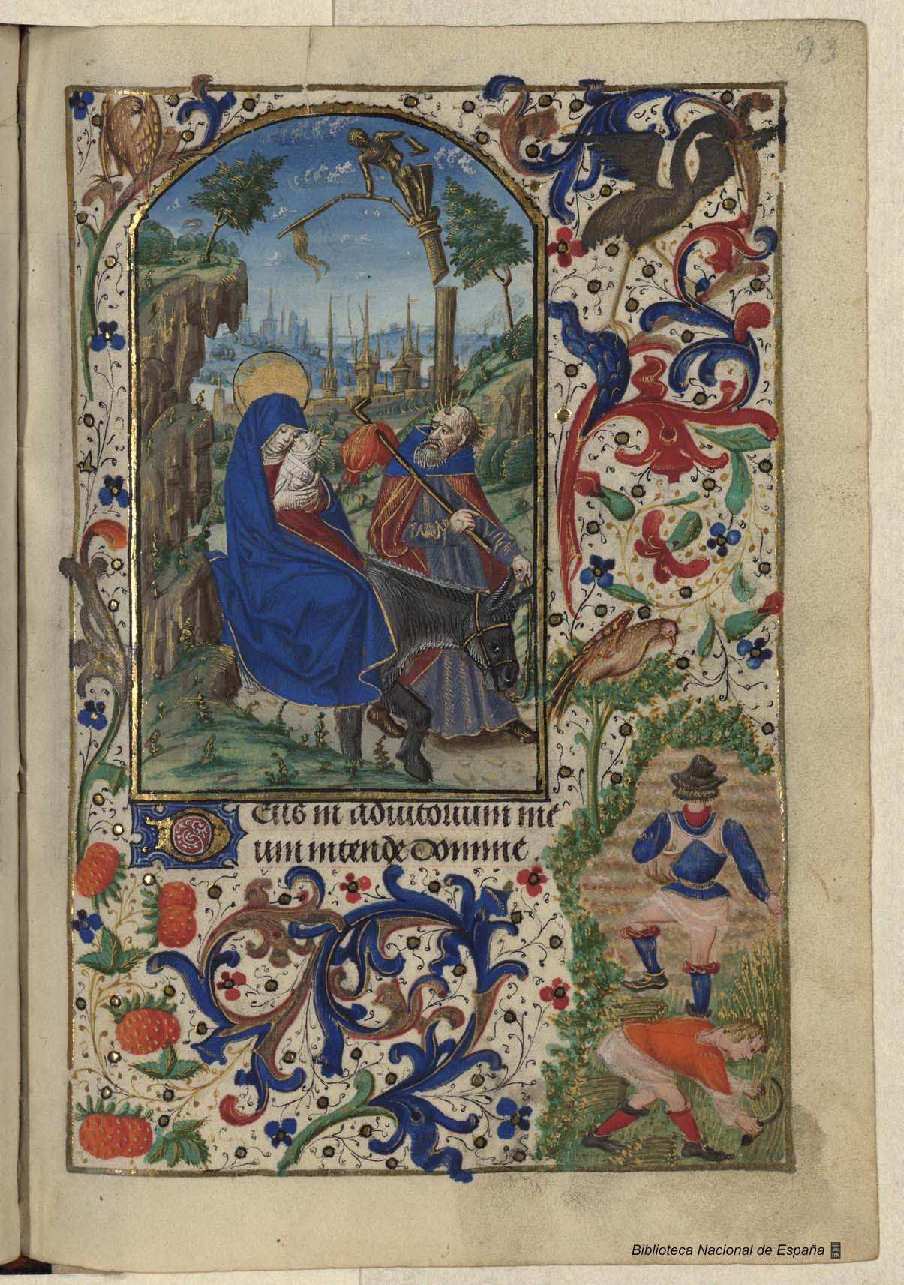 93
Deus in adiutorium me
um intende Domine
Biblioteca Nacional de España